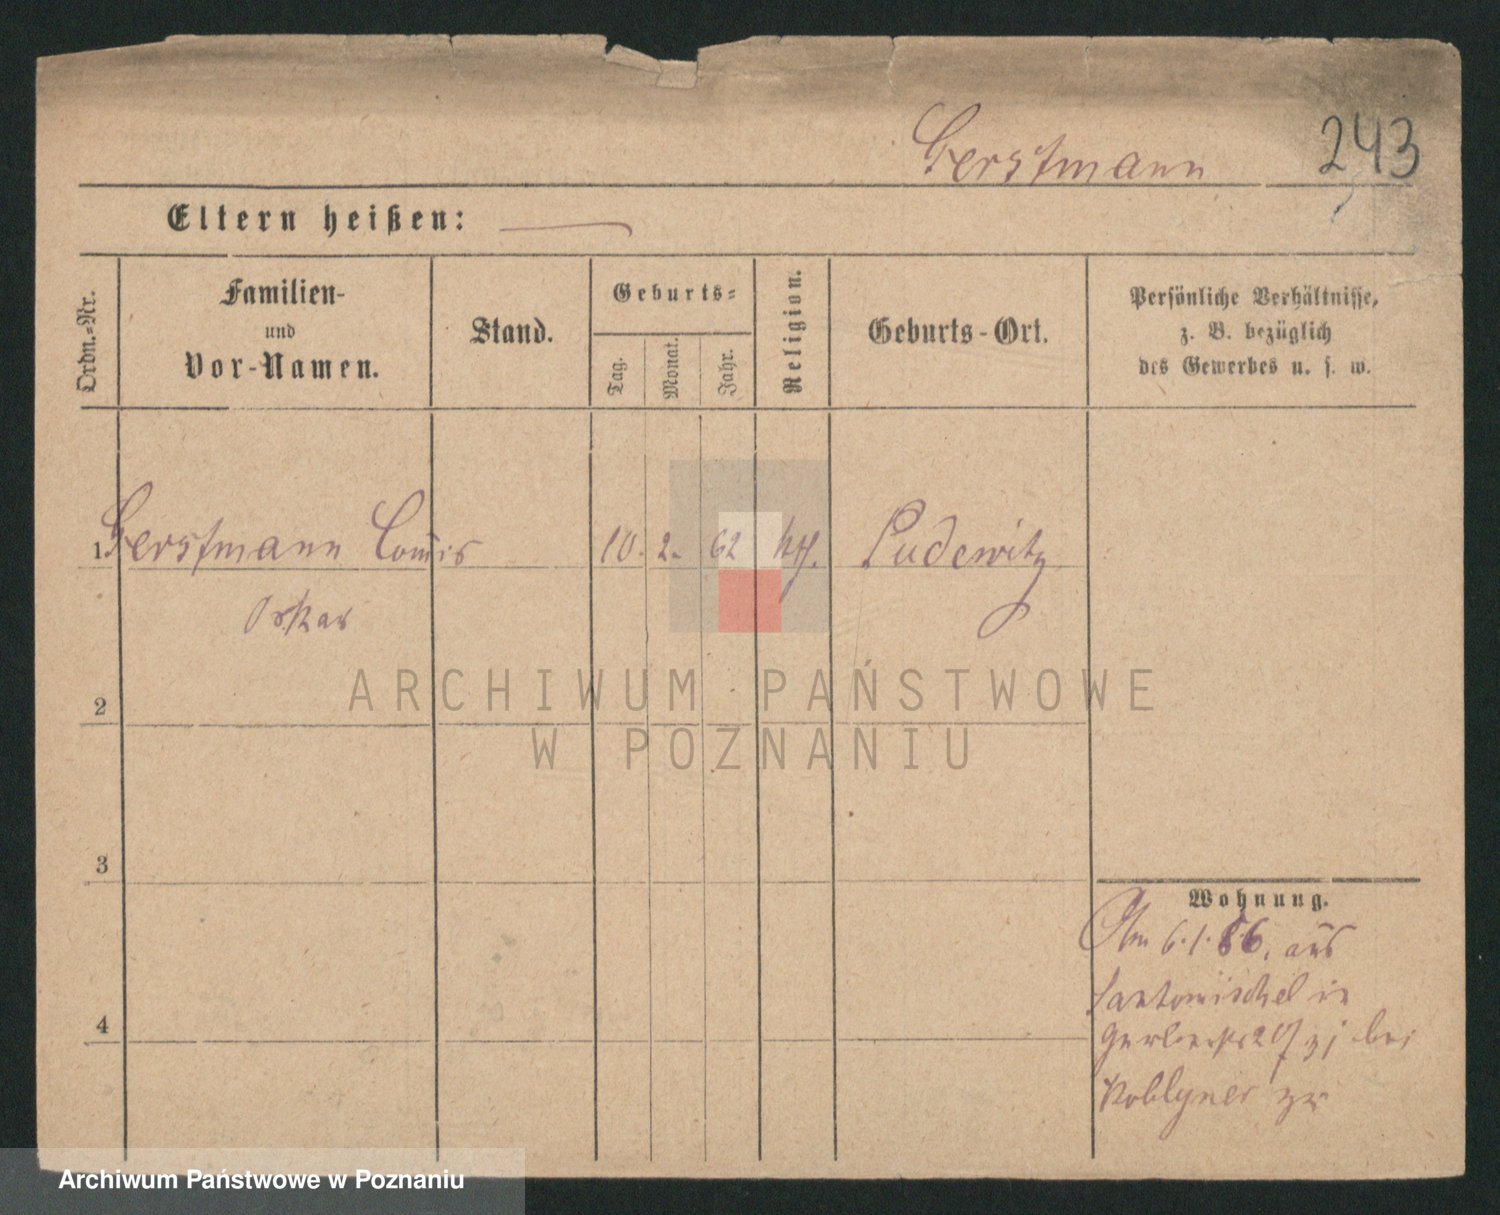 Gerstmann 243
Eltern heißen:
Ordn.-Nr.
Familien-
und
Vor-Namen.
Stand.
Geburts-
Tag.
Monat.
Jahr.
Religion.
Geburts-Ort.
Persönliche Verhältnisse,
z. B. bezüglich
des Gewerbes u. s. w.
1. Gerstmann Louis 10. 2. 62 Pudewitz
Oskar
2
3
4
Wohnung.
Am 6.1.86. aus
Santomischel in
bei
zu
ARCHIWUM PAŃSTWOWE
W POZNANIU
Archiwum Państwowe w Poznaniu